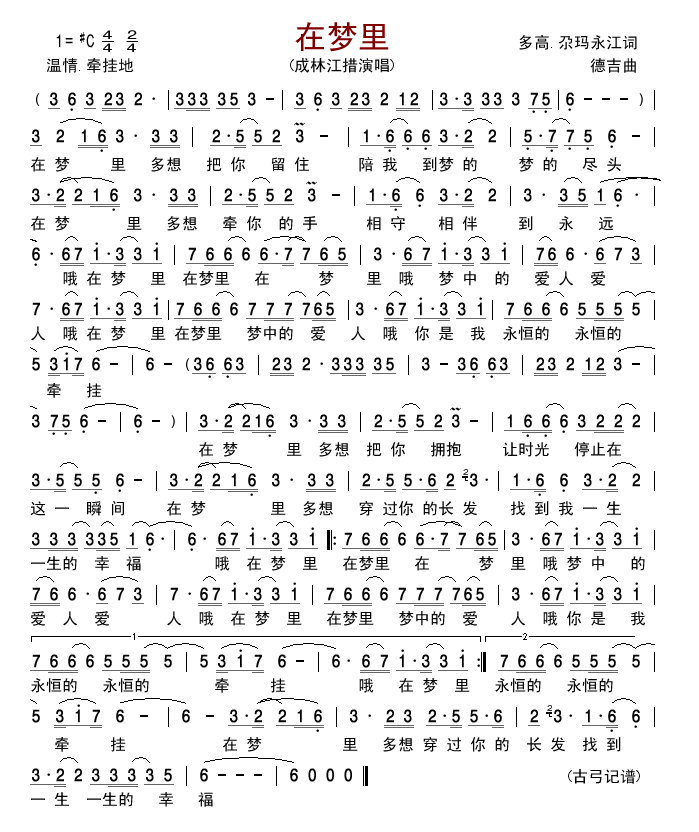 在梦里
1= #C 4/4 2/4
多高.尕玛永江词
温情.牵挂地
(成林江措演唱)
德吉曲
( 3 6 3 23 2 · | 333 35 3 - | 3 6 3 23 2 12 | 3·3 33 3 75 | 6 - - - ) |
3 2 16 3· 33 | 2·5 52 3 - | 1·6 66 3·2 2 | 5·7 75 6 - |
在 梦 里 多想 把你 留住 陪我 到梦的 梦的 尽头
3·2 216 3· 33 | 2·5 52 3 - | 1·6 6 3·2 2 | 3· 35 1 6· |
在梦 里 多想 牵你 的手 相守 相伴 到 永 远
6· 67 1·3 31 | 7666 6·7 765 | 3· 67 1·3 31 | 76 6·6 73 |
哦在梦 里 在梦里 在 梦 里 哦 梦中 的 爱人爱
7· 67 1·3 31 | 7666 777 765 | 3· 67 1·3 31 | 7666 5555 |
人 哦在梦 里 在梦里 梦中的 爱 人 哦 你是 我 永恒的 永恒的
5 317 6 - | 6 - (36 63 | 23 2· 333 35 | 3 - 36 63 | 23 2 12 3 - |
牵 挂
3 75 6 - | 6 - ) | 3·2 216 3· 33 | 2·5 52 3 - | 166 6 322 2 |
在梦 里 多想 把你 拥抱 让时光 停止在
3·5 55 6 - | 3·2 216 3· 33 | 2·5 5·6 2 3· | 1·6 6 3·2 2 |
这一 瞬间 在梦 里 多想 穿过你的长发 找到我一生
333 335 1 6· | 6· 67 1·3 31 ‖: 7666 6·7 765 | 3· 67 1·3 31 |
一生的 幸 福 哦在梦 里 在梦里 在 梦 里 哦梦中 的
76 6·6 73 | 7· 67 1·3 31 | 7666 777 765 | 3· 67 1·3 31 |
爱人爱 人 哦在梦 里 在梦里 梦中的 爱 人 哦你是 我
1 2
7666 555 5 | 5 317 6 - | 6· 67 1·3 31 :‖ 7666 555 5 |
永恒的 永恒的 牵 挂 哦 在梦 里 永恒的 永恒的
5 317 6 - | 6 - 3·2 216 | 3· 23 2·5 5·6 | 2 3· 1·6 6 |
牵 挂 在梦 里 多想穿过你的长发找到
3·2 2 333 35 | 6 - - - | 6 0 0 0 ‖
一生 一生的 幸 福
(古弓记谱)